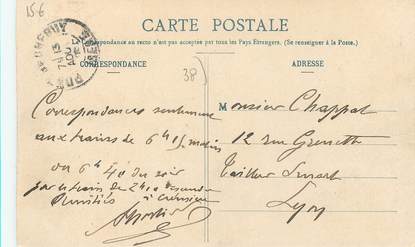 15-6
CARTE POSTALE
La Correspondance au recto n'est pas acceptée par tous les Pays Étrangers. (Se renseigner à la Poste.)
CORRESPONDANCE
ADRESSE
38
Correspondances seulement
aux trains de 6h 15 matin
ou 6h 40 du soir
par le train de 2h
à Crémieu
Monsieur Chappat
12 rue Grenette
Tailleur
Lyon